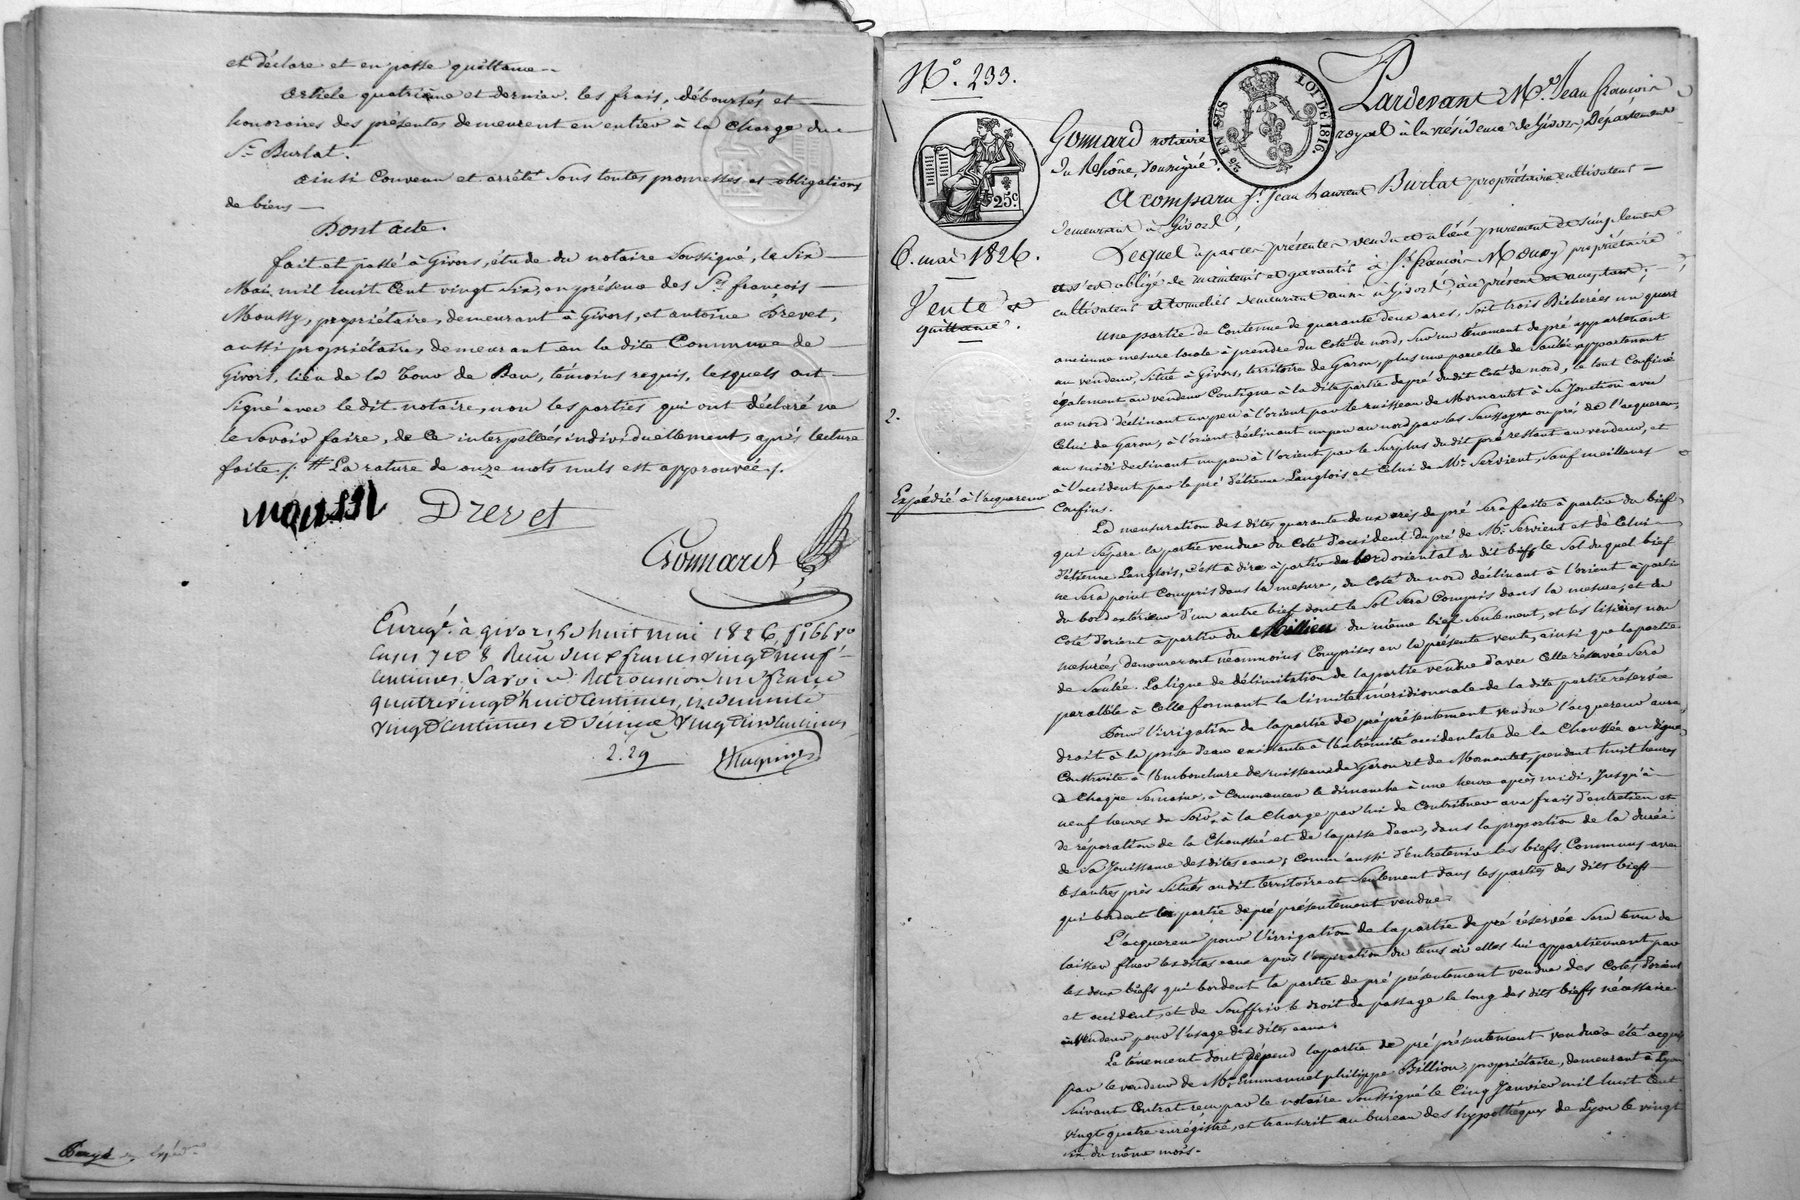 et déclare et en passe quittance
article quatrième et dernier. les frais, déboursés et
honoraires des présentes demeurent en entier à la charge du
Sr. Burlat.
ainsi convenu et arrêté sous toutes promesses et obligations
de biens
Dont acte.
fait et passé à Givors, étude du notaire soussigné, le six
Mai mil huit cent vingt six, en présence des Srs françois
Moussy, propriétaire, demeurant à Givors, et antoine Drevet,
aussi propriétaire, demeurant en la dite Commune de
Givors, lieu de la Tour de Ban, témoins requis, lesquels ont
signé avec le dit notaire, non les parties qui ont déclaré ne
le savoir faire, de ce interpellées individuellement, après lecture
faite ./. # La rature de onze mots nuls est approuvée ./.
Drevet
Gonnard
Enregt. à givors le huit mai 1826, fo 66 vo
cases 7 et 8 Reçu deux francs vingt neuf
centimes. Savoir
quatrevingt huit centimes,
vingt centimes et dixième vingt un centimes
2.29
No. 233.
25c
25 EN SUS
LOI DE 1816.
Pardevant Me. Jean françois
Gonnard notaire royal à la résidence de Givors, Département
du Rhône soussigné.
A comparu Sr. Jean Laurent Burlat propriétaire cultivateur
demeurant à Givors,
6. mai 1826.
Vente et
quittance.
Lequel a par ces présentes vendu et aliéné purement et simplement
et s'est obligé de maintenir et garantir à Sr. françois Mouzy propriétaire
cultivateur et tonnelier demeurant aussi à Givors, à ce présent et acceptant;
une partie de contenue de quarante deux ares, soit trois Bicherées un quart
ancienne mesure locale à prendre du coté de nord, sur un tènement de pré appartenant
au vendeur, situé à Givors, territoire de Garon, plus une parcelle de Saulée appartenant
également au vendeur contigue à la dite partie de pré dudit coté de nord, le tout confiné
au nord déclinant un peu à l'orient par le ruisseau de Mornantet à sa jonction avec
celui de Garon, à l'orient déclinant un peu au nord par les
2.
au midi declinant un peu à l'orient par le surplus du dit pré restant au vendeur, et
à l'occident par le pré d'étienne Langlois et celui de Mr. Servient, sauf meilleurs
confins.
Expédié à l'acquereur
La mensuration des dites quarante deux ares de pré sera faite à partir du bief
qui sépare la partie vendue du coté d'occident du pré de Mr. Servient et de celui
d'étienne Langlois, c'est à dire à partir du bord oriental du dit bief le sol duquel bief
ne sera point compris dans la mesure, du coté du nord déclinant à l'orient à partir
du bord extérieur d'un autre bief dont le sol sera compris dans la mesure, et du
coté d'orient à partir du Millieu du même bief seulement, et les lisières non
mesurées demeureront néanmoins comprises en la présente vente, ainsi que la partie
de Saulée. La ligne de délimitation de la partie vendue d'avec celle réservée sera
parallèle à celle formant la limite méridionnale de la dite partie réservée
Pour l'irrigation de la partie de pré présentement vendue l'acquereur aura
droit à la prise d'eau existante à l'extrémité occidentale de la chaussée ou digue
construite à l'embouchure des ruisseaux de Garon et de Mornantet, pendant huit heures
de chaque semaine, à commencer le dimanche à une heure après midi, jusqu'à
neuf heures du soir, à la charge par lui de contribuer aux frais d'entretien et
de réparation de la chaussée et de la prise d'eau, dans la proportion de la durée
de sa jouissance des dites eaux; comm'aussi d'entretenir les biefs communs avec
les autres près situés au dit territoire et seulement dans les parties des dits biefs
qui bordent la partie de pré présentement vendue.
L'acquereur pour l'irrigation de la partie de pré réservée sera tenu de
laisser fluer les dites eaux après l'expiration du tems où elles lui appartiennent par
les deux biefs qui bordent la partie de pré présentement vendue des cotés d'orient
et occident, et de souffrir le droit de passage le long des dits biefs nécessaire
au vendeur pour l'usage des dites eaux.
Le tènement dont dépend la partie de pré présentement vendue a été acquis
par le vendeur de Mr. Emmanuel philippe Billion propriétaire, demeurant à Lyon
suivant contrat reçu par le notaire soussigné le cinq janvier mil huit cent
vingt quatre enregistré, et transcrit au bureau des hypothèques de Lyon le vingt
six du même mois.